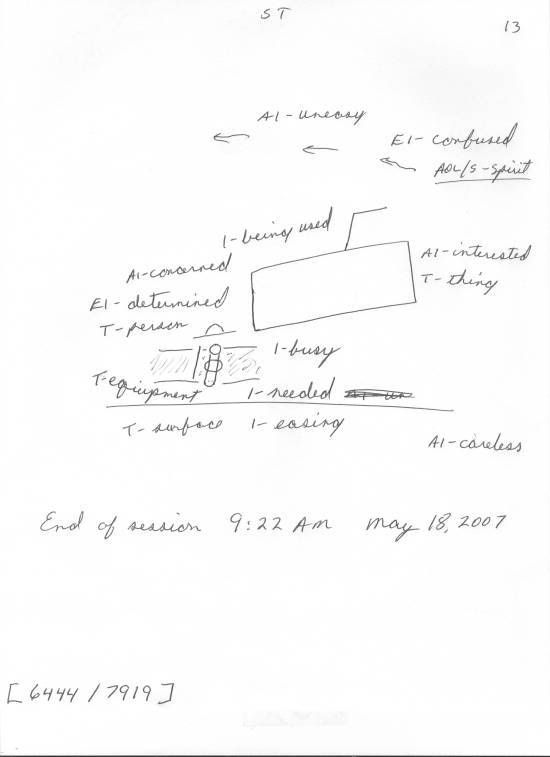 ST
13
AI-uneasy
EI-confused
AOL/S-spirit
I-being used
AI-interested
T-thing
AI-concerned
EI-determined
T-person
I-busy
T-equipment
I-needed
T-surface I-easing
AI-careless
End of session 9:22 AM May 18, 2007
[6444/7919]